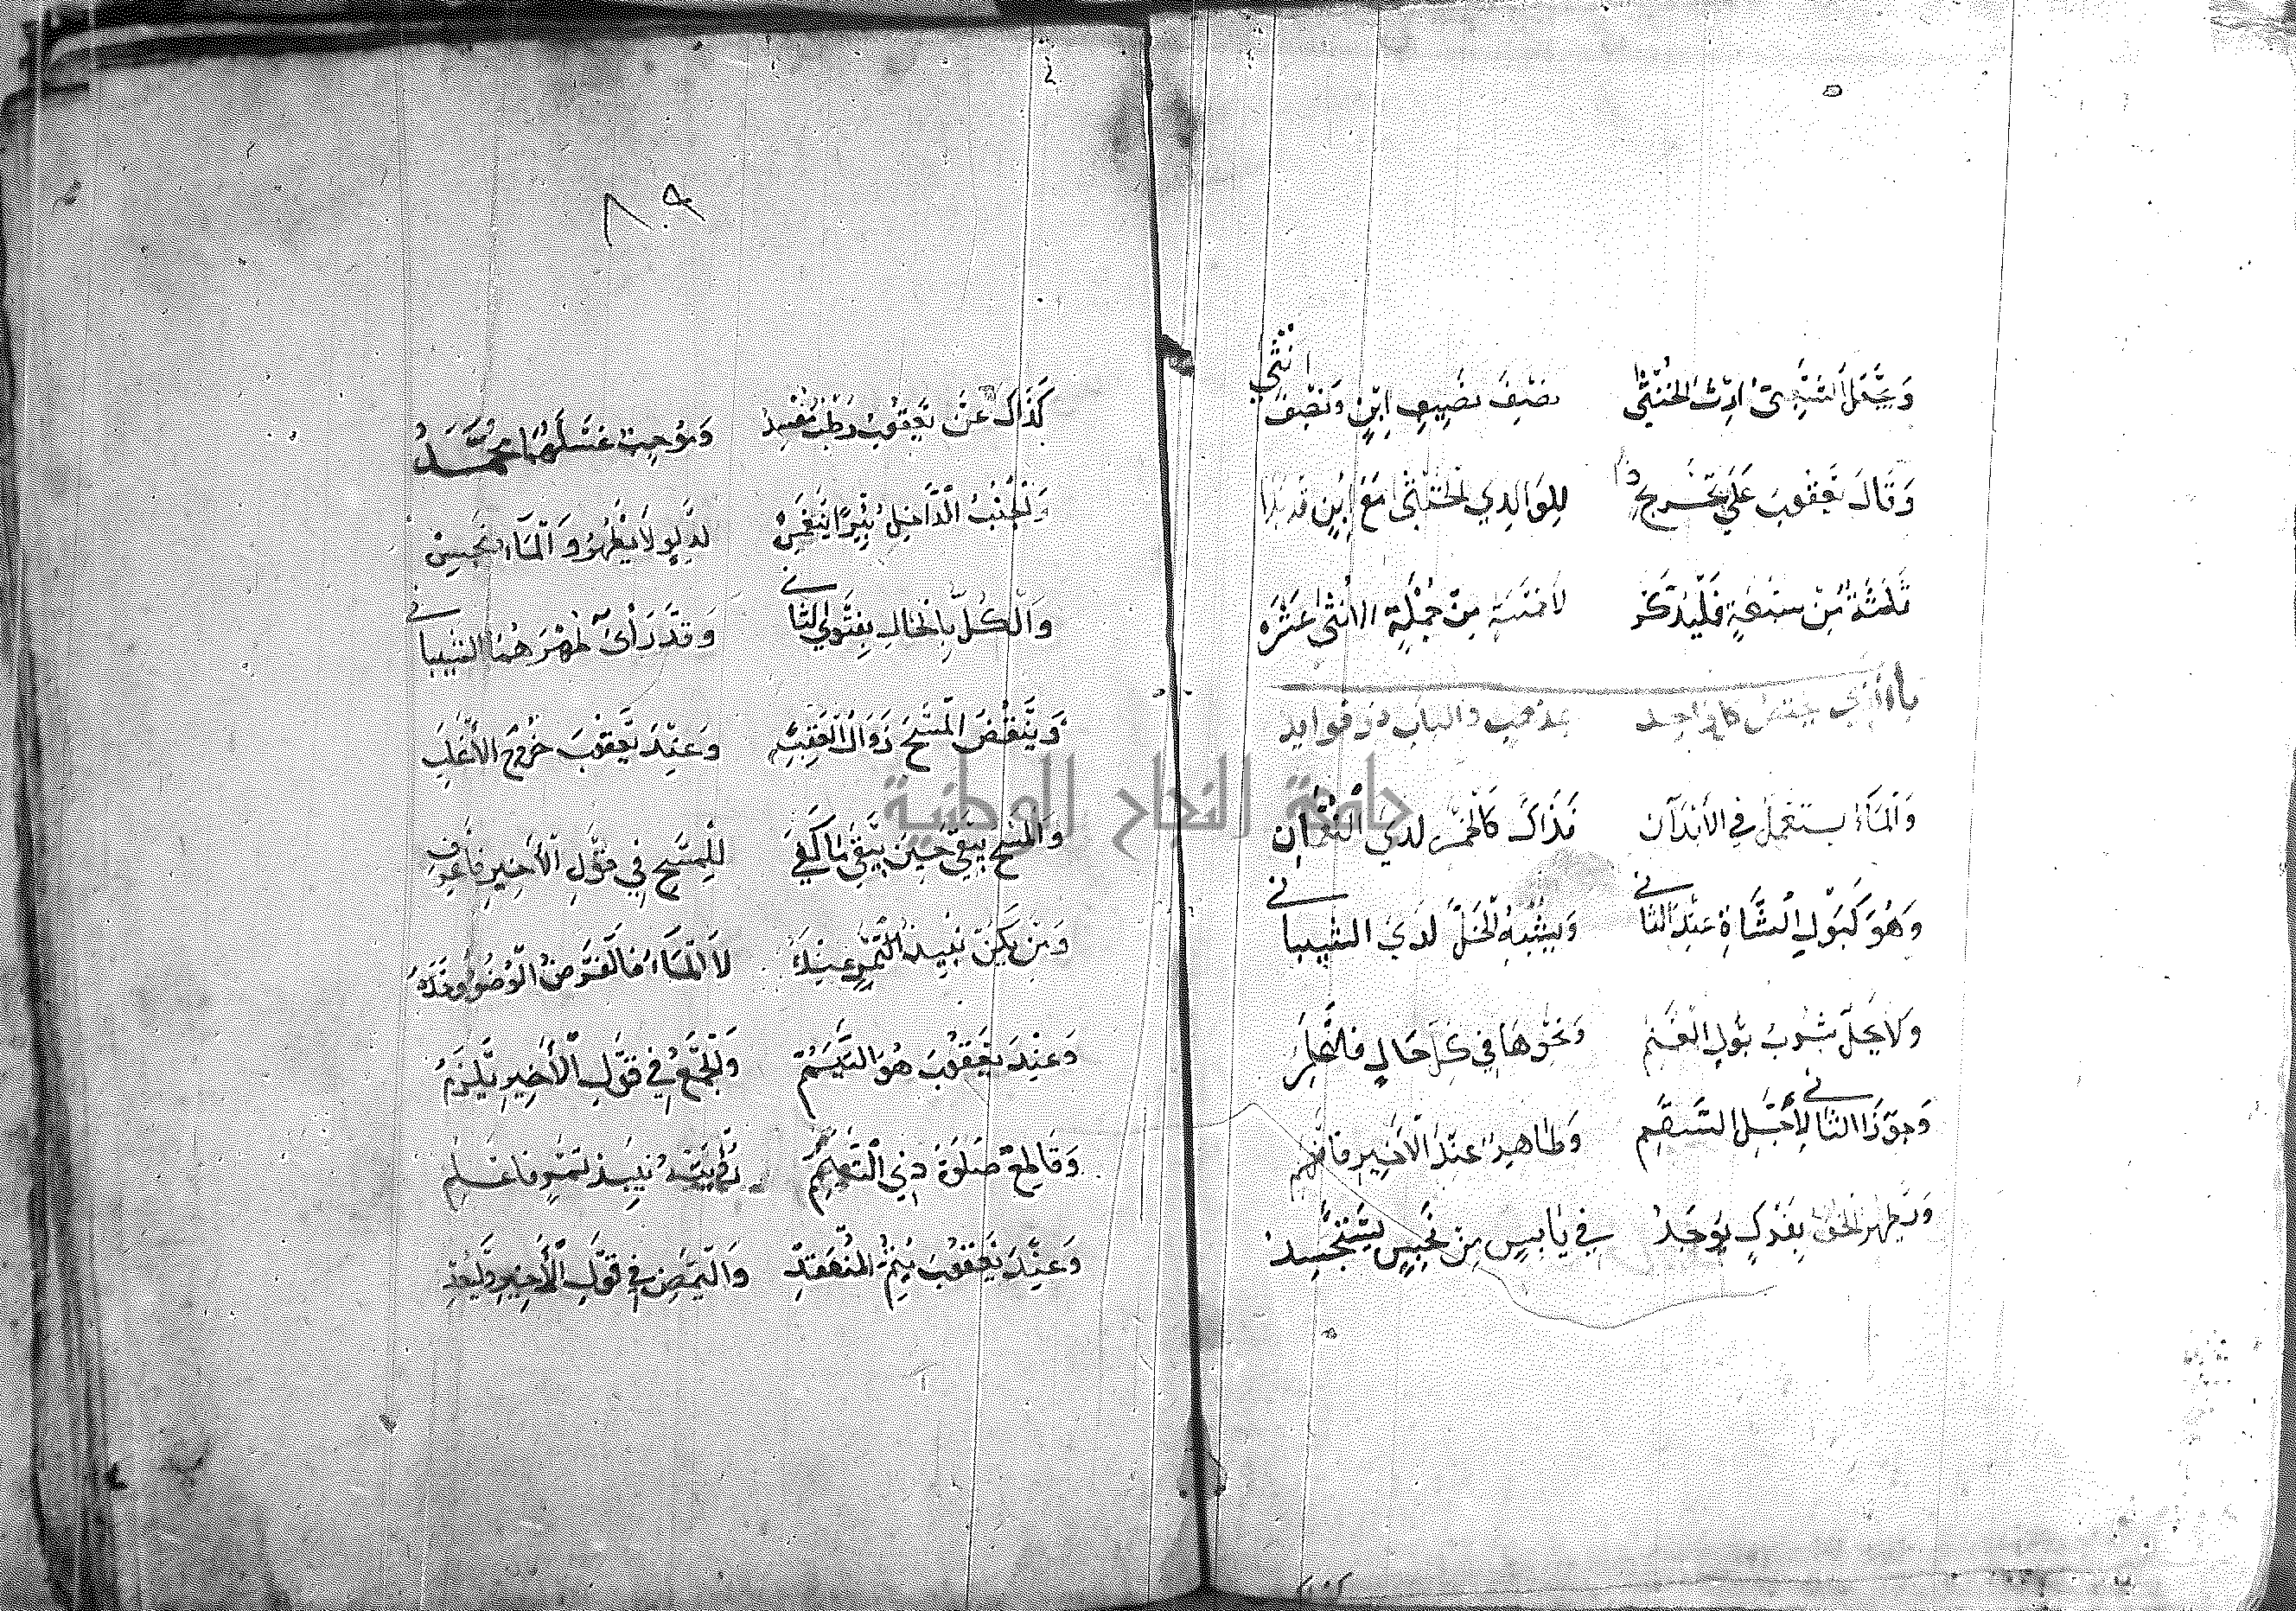 وَيَجْعَلُ الشَّعْبِيُّ اِرْثَ الْخُنْثَى نِصْفَ نَصِيبِ ابْنٍ وَنِصْفَ اُنْثَى
وَقَالَ يَعْقُوبُ عَلَى تَخْرِيجِ ذَا لِلْوَالِدِي الْخُنْثَى مَعَ ابْنٍ
ثَلَاثَةٌ مِنْ سَبْعَةٍ فَلْيُذْكَر لَا خَمْسَةٍ مِنْ جُمْلَةِ الِاثْنَى عَشَرَه
كل واحد بمذهب والباب ذو فوايد
وَالْمَاءُ يستعمل فِي الْأَبْدَانِ فَذَاكَ كَالْخَمْرِ لَدَى النُّعْمَانِ
وَهُوَ كَبَوْلِ الشَّاةِ عِنْدَ الثَّانِي وَيُشْبِهُ الْخَلَّ لَدَى الشيباني
وَلَا يَحِلُّ شُرْبُ بَوْلِ الْغَنَمِ وَنَحْوِهَا فِي كُلِّ حَالٍ فَاعْلَمِ
وَجَوَّزَا الثَّانِي لِأَجْلِ السَّقَمِ وَطَاهِرٌ عِنْدَ الْأَخِيرِ فَافْهَمِ
وَيَطْهُرُ الْخُفُّ بِفَرْكٍ يُوجَدُ فِي يَابِسٍ مِنْ نَجَسٍ يُسْتَجْسَدُ
جامعة النجاح الوطنية
٨٩
كَذَاكَ عَنْ يَعْقُوبَ رَطْبٌ مُفْسِدُ وَيُوجِبُ غَسْلَهُمَا مُحَمَّدُ
وَالْجُنُبُ الدَّاخِلُ بِئْرًا يَنْغَمِسْ لَا يَطْهُرُ وَالْمَاءُ نَجِسْ
وَالْكُلُّ بِالْحَالِ بِفَتْوَى الثَّانِي وَقَدْ رَأَى طُهْرَهُمَا الشيباني
وَيَنْقُضُ الْمَسْحَ زَوَالُ الْعَقِبِ وَعِنْدَ يَعْقُوبَ خُرُوجُ الْأَغْلَبِ
وَالْمَسْحُ يَبْقَى حِينَ يَبْقَى مَا كَفَى لِلْمَسْحِ فِي قَوْلِ الْأَخِيرِ فَاعْرِفِ
وَمَنْ يَكُنْ نَبِيذُ التَّمْرِ عِنْدَهُ لَا الْمَاءُ فَالْفَرْضُ الْوُضُوءُ وَحْدَهُ
وَعِنْدَ يَعْقُوبَ هُوَ التَّيَمُّمُ وَالْجَمْعُ فِي قَوْلِ الْأَخِيرِ يَلْزَمُ
وَقَاطِعٌ صَلٰوةَ ذِي التَّيَمُّمِ نبيذ تمر فاعلم
وَعِنْدَ يَعْقُوبَ يُتِمُّ الْمُنْعَقِدْ وَالْيَمْضِ فِي قَوْلِ الْأَخِيرِ وَلْيُعِدْ